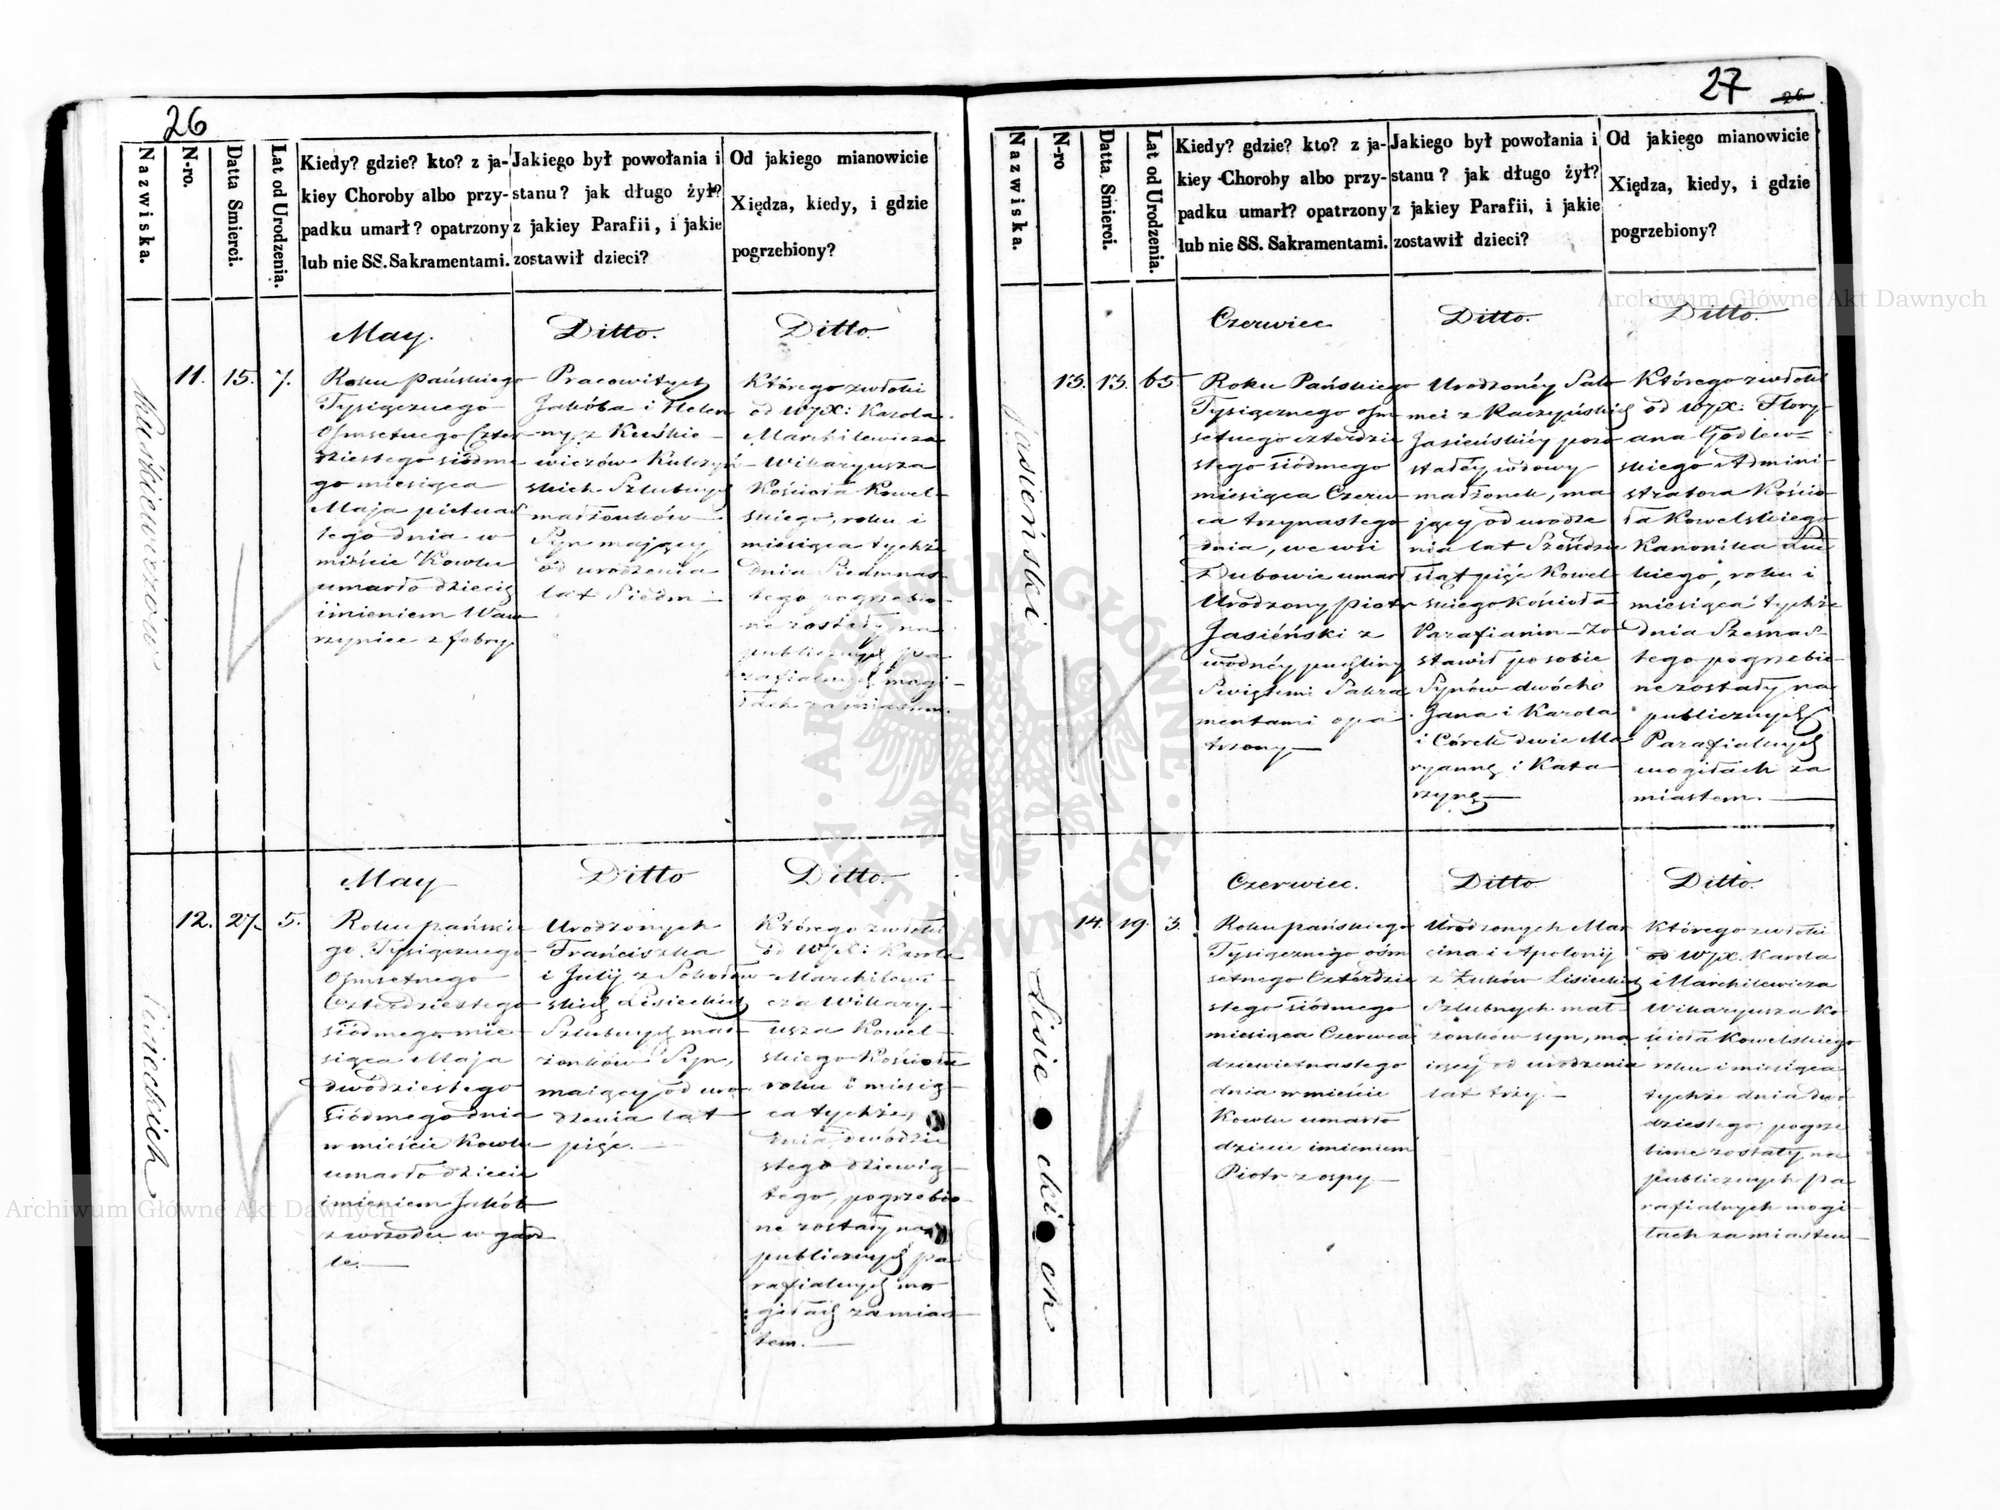 26
Nazwiska.
N-ro.
Datta Smierci.
Lat od Urodzenia.
Kiedy? gdzie? kto? z ja-
kiey Choroby albo przy-
padku umarł? opatrzony
lub nie SS. Sakramentami.
Jakiego był powołania i
stanu? jak długo żył?
z jakiey Parafii, i jakie
zostawił dzieci?
Od jakiego mianowicie
Xiędza, kiedy, i gdzie
pogrzebiony?
11.
15.
7.
May.
Roku Pańskiego
Tysiącznego
Osmsetnego Czter
dziestego siódme
go miesiąca
Maja pietnas
tego dnia w
mieście Kowlu
umarło dziecię
imieniem Waw
rzyniec z febry
Ditto.
Pracowitych
Jakóba i Helen
ny z Kuśkie-
wiczów Kulczyń
skich Szlubnych
małżonków
Syn mający
od urodzenia
lat Siedm
Ditto.
Którego zwłoki
od WJX: Karola
Marchilewicza
Wikaryusza
Kościoła Kowel-
skiego, roku i
miesiąca tychże
dnia Siedmnas
tego pogrzebio-
ne zostały na
publicznych pa
rafialnych mogi-
łach za miastem.
12.
27.
5.
Lisieckich
May
Roku pańskie
go Tysiącznego
Osmsetnego
Czterdziestego
siódmego mie-
siąca Maja
dwódziestego
siódmego dnia
w mieście Kowlu
umarło dziecie
imieniem Jakób
z wrzodu w gard
le.
Ditto
Urodzonych
Franciszka
i Julij z Sokołow
skich Lisieckich
Szlubnych mał-
żonków Syn,
maiący od uro-
dzenia lat
pięć.
Ditto.
Którego zwłoki
od WJX: Karola
Marchilewi-
cza Wikary-
usza Kowel-
skiego Kościoła
roku i miesią-
ca tychże,
dnia dwódzie
stego dziewią-
tego, pogrzebio-
ne zostały na
publicznych pa
rafialnych mo-
giłach za mias-
tem.
27
26
Nazwiska.
N-ro
Datta Smierci.
Lat od Urodzenia.
Kiedy? gdzie? kto? z ja-
kiey Choroby albo przy-
padku umarł? opatrzony
lub nie SS. Sakramentami.
Jakiego był powołania i
stanu? jak długo żył?
z jakiey Parafii, i jakie
zostawił dzieci?
Od jakiego mianowicie
Xiędza, kiedy, i gdzie
pogrzebiony?
Jasieński
13.
13.
65.
Czerwiec
Roku Pańskiego
Tysiącznego osm
setnego czterdzie
stego siódmego
miesiąca Czerw-
ca trzynastego
dnia, we wsi
Dubowie umarł
Urodzony Piotr
Jasiéński z
wodnéy puchliny
Swiętemi Sakra
mentami opa
trzony
Ditto.
Urodzonéy Salo
mei z Raczyńskich
Jasieńskiéy pozo
stałéy wdowy
małżonek, ma
jący od urodze
nia lat Sześdzie
siąt pięć Kowel
skiego Kościoła
Parafianin Zo
stawił po sobie
Synów dwócho
Jana i Karola
i Córek dwie Ma
ryannę i Kata
rzynę
Ditto.
Którego zwłoki
od WJX: Flory-
ana Godlew-
skiego Admini-
stratora Kościo-
ła Kowelskiego
Kanonika Łuc
kiego, roku i
miesiąca tychże
dnia Szesnas-
tego pogrzebio-
ne zostały na
publicznych
Parafialnych
mogiłach za
miastem.
Lisieckich
14.
19.
3.
Czerwiec.
Roku pańskiego
Tysiącznego ośm
setnego Czterdzie
stego siódmego
miesiąca Czerwca
dziewietnastego
dnia w mieście
Kowlu umarło
dziecie imieniem
Piotr z ospy
Ditto.
Urodzonych Mar
cina i Apolonij
z Żuków Lisieckich
Szlubnych mał-
żonków syn, ma
iący od urodzenia
lat trzy.
Ditto.
Którego zwłoki
od WJX. Karola
Marchilewicza
Wikaryusza Ko
ścioła Kowelskiego
roku i miesiąca
tychże dnia dwó
dziestego, pogrze
bione zostały na
publicznych pa
rafialnych mogi
łach za miastem
Archiwum Główne Akt Dawnych
Archiwum Główne Akt Dawnych
ARCHIWUM GŁÓWNE AKT DAWNYCH